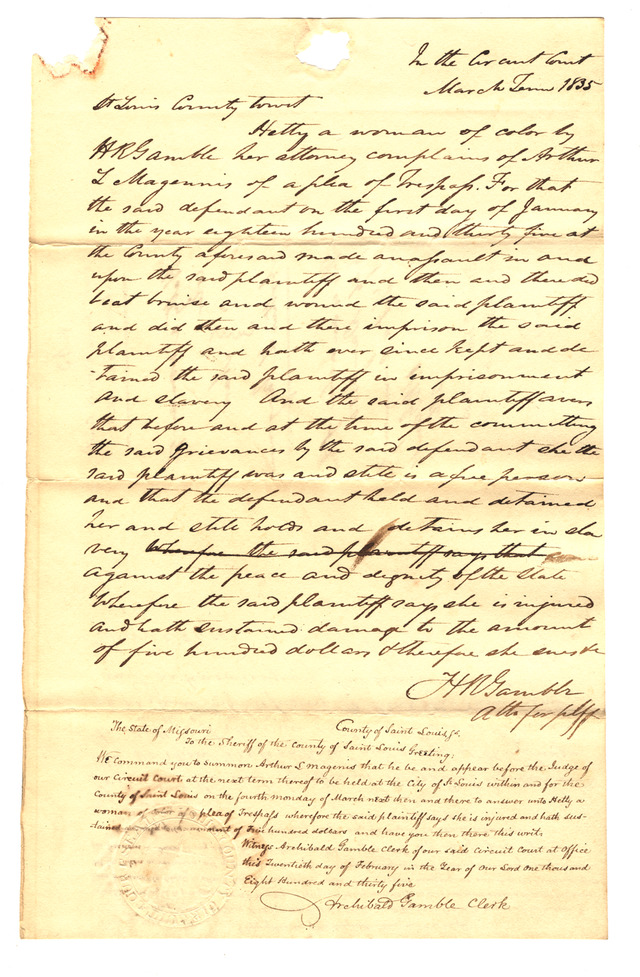 In the Circuit Court
March Term 1835
St Louis County towit
Hetty a woman of color by
H R Gamble her attorney complains of Arthur
L Magennis of a plea of Trespass. For that
the said defendant on the first day of January
in the year eighteen hundred and thirty five at
the County aforesaid made an assault in and
upon the said plaintiff and then and there did
beat bruise and wound the said plaintiff
and did then and there imprison the said
plaintiff and hath ever since kept and de
-tained the said plaintiff in imprisonment
and slavery And the said plaintiff avers
that before and at the time of the committing
the said grievances by the said defendant she the
said plaintiff was and still is a free person
and that the defendant held and detained
her and still holds and detains her in sla
very wherefore the said plaintiff says that
against the peace and dignity of the State
Wherefore the said plaintiff says she is injured
and hath sustained damage to the amount
of five hundred dollars & therefore she sues &c
H R Gamble
Atto for plff
The State of Missouri County of Saint Louis ss.
To the Sheriff of the County of Saint Louis Greeting;
We command you to summon Arthur L Magenis that he be and appear before the Judge of
our Circuit Court at the next term thereof to be held at the City of St Louis within and for the
County of Saint Louis on the fourth monday of March next then and there to answer unto Hetty a
woman of color of a plea of Trespass wherefore the said plaintiff says she is injured and hath sus-
tained damage to the amount of Five hundred dollars and have you then there this writ.
Witness Archibald Gamble Clerk of our said Circuit Court at office
this Twentieth day of February in the Year of our Lord One thousand
Eight Hundred and thirty five
Archibald Gamble Clerk